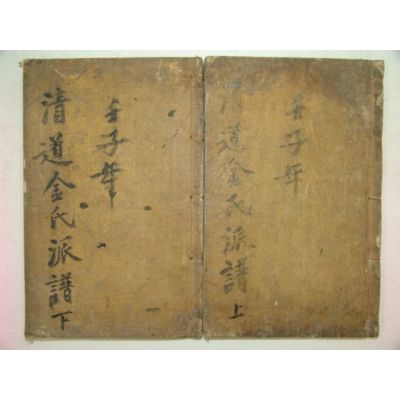 清道金氏派譜 下
壬子年
清道金氏派譜 上
壬子年